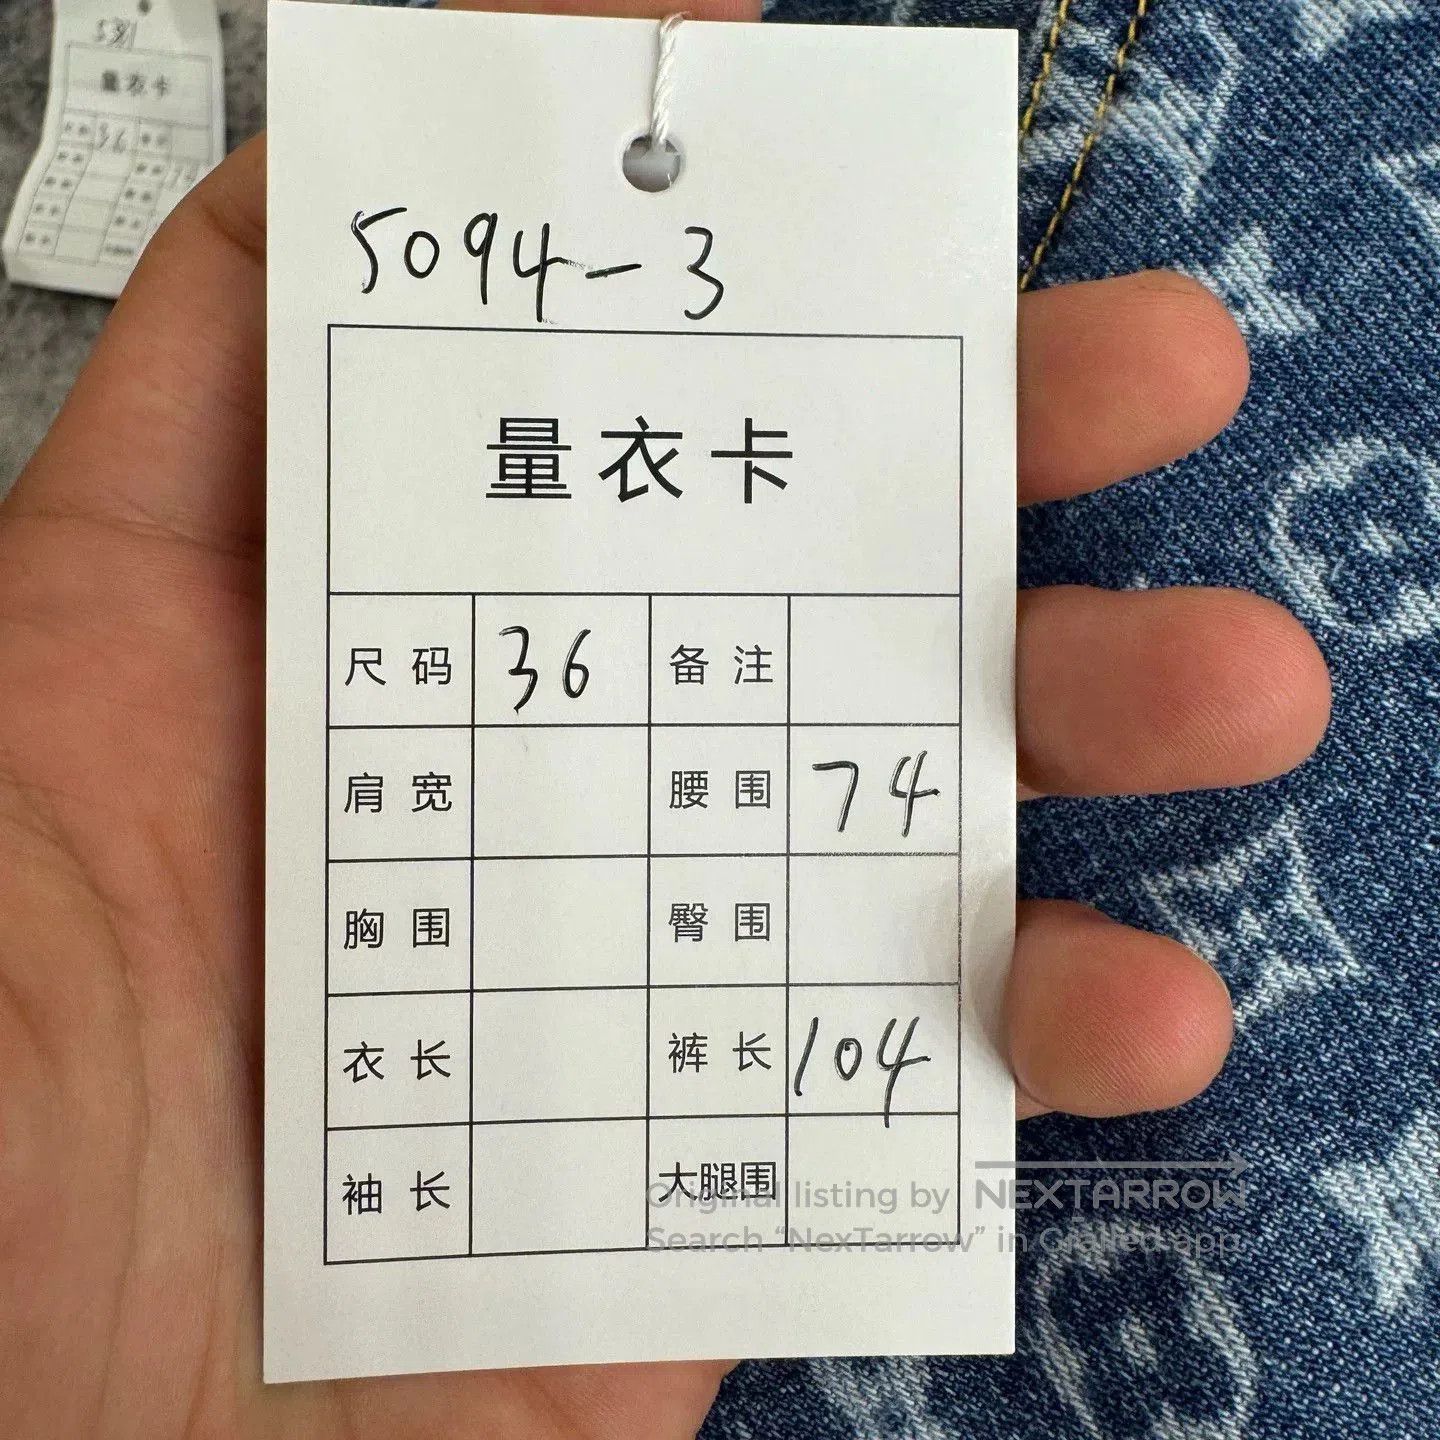 5094-3
量衣卡
尺码 36 备注
肩宽 腰围 74
胸围 臀围
衣长 裤长 104
袖长 大腿围
Original listing by NEXTARROW
Search “NexTarrow” in Grailed app.
量衣卡
36